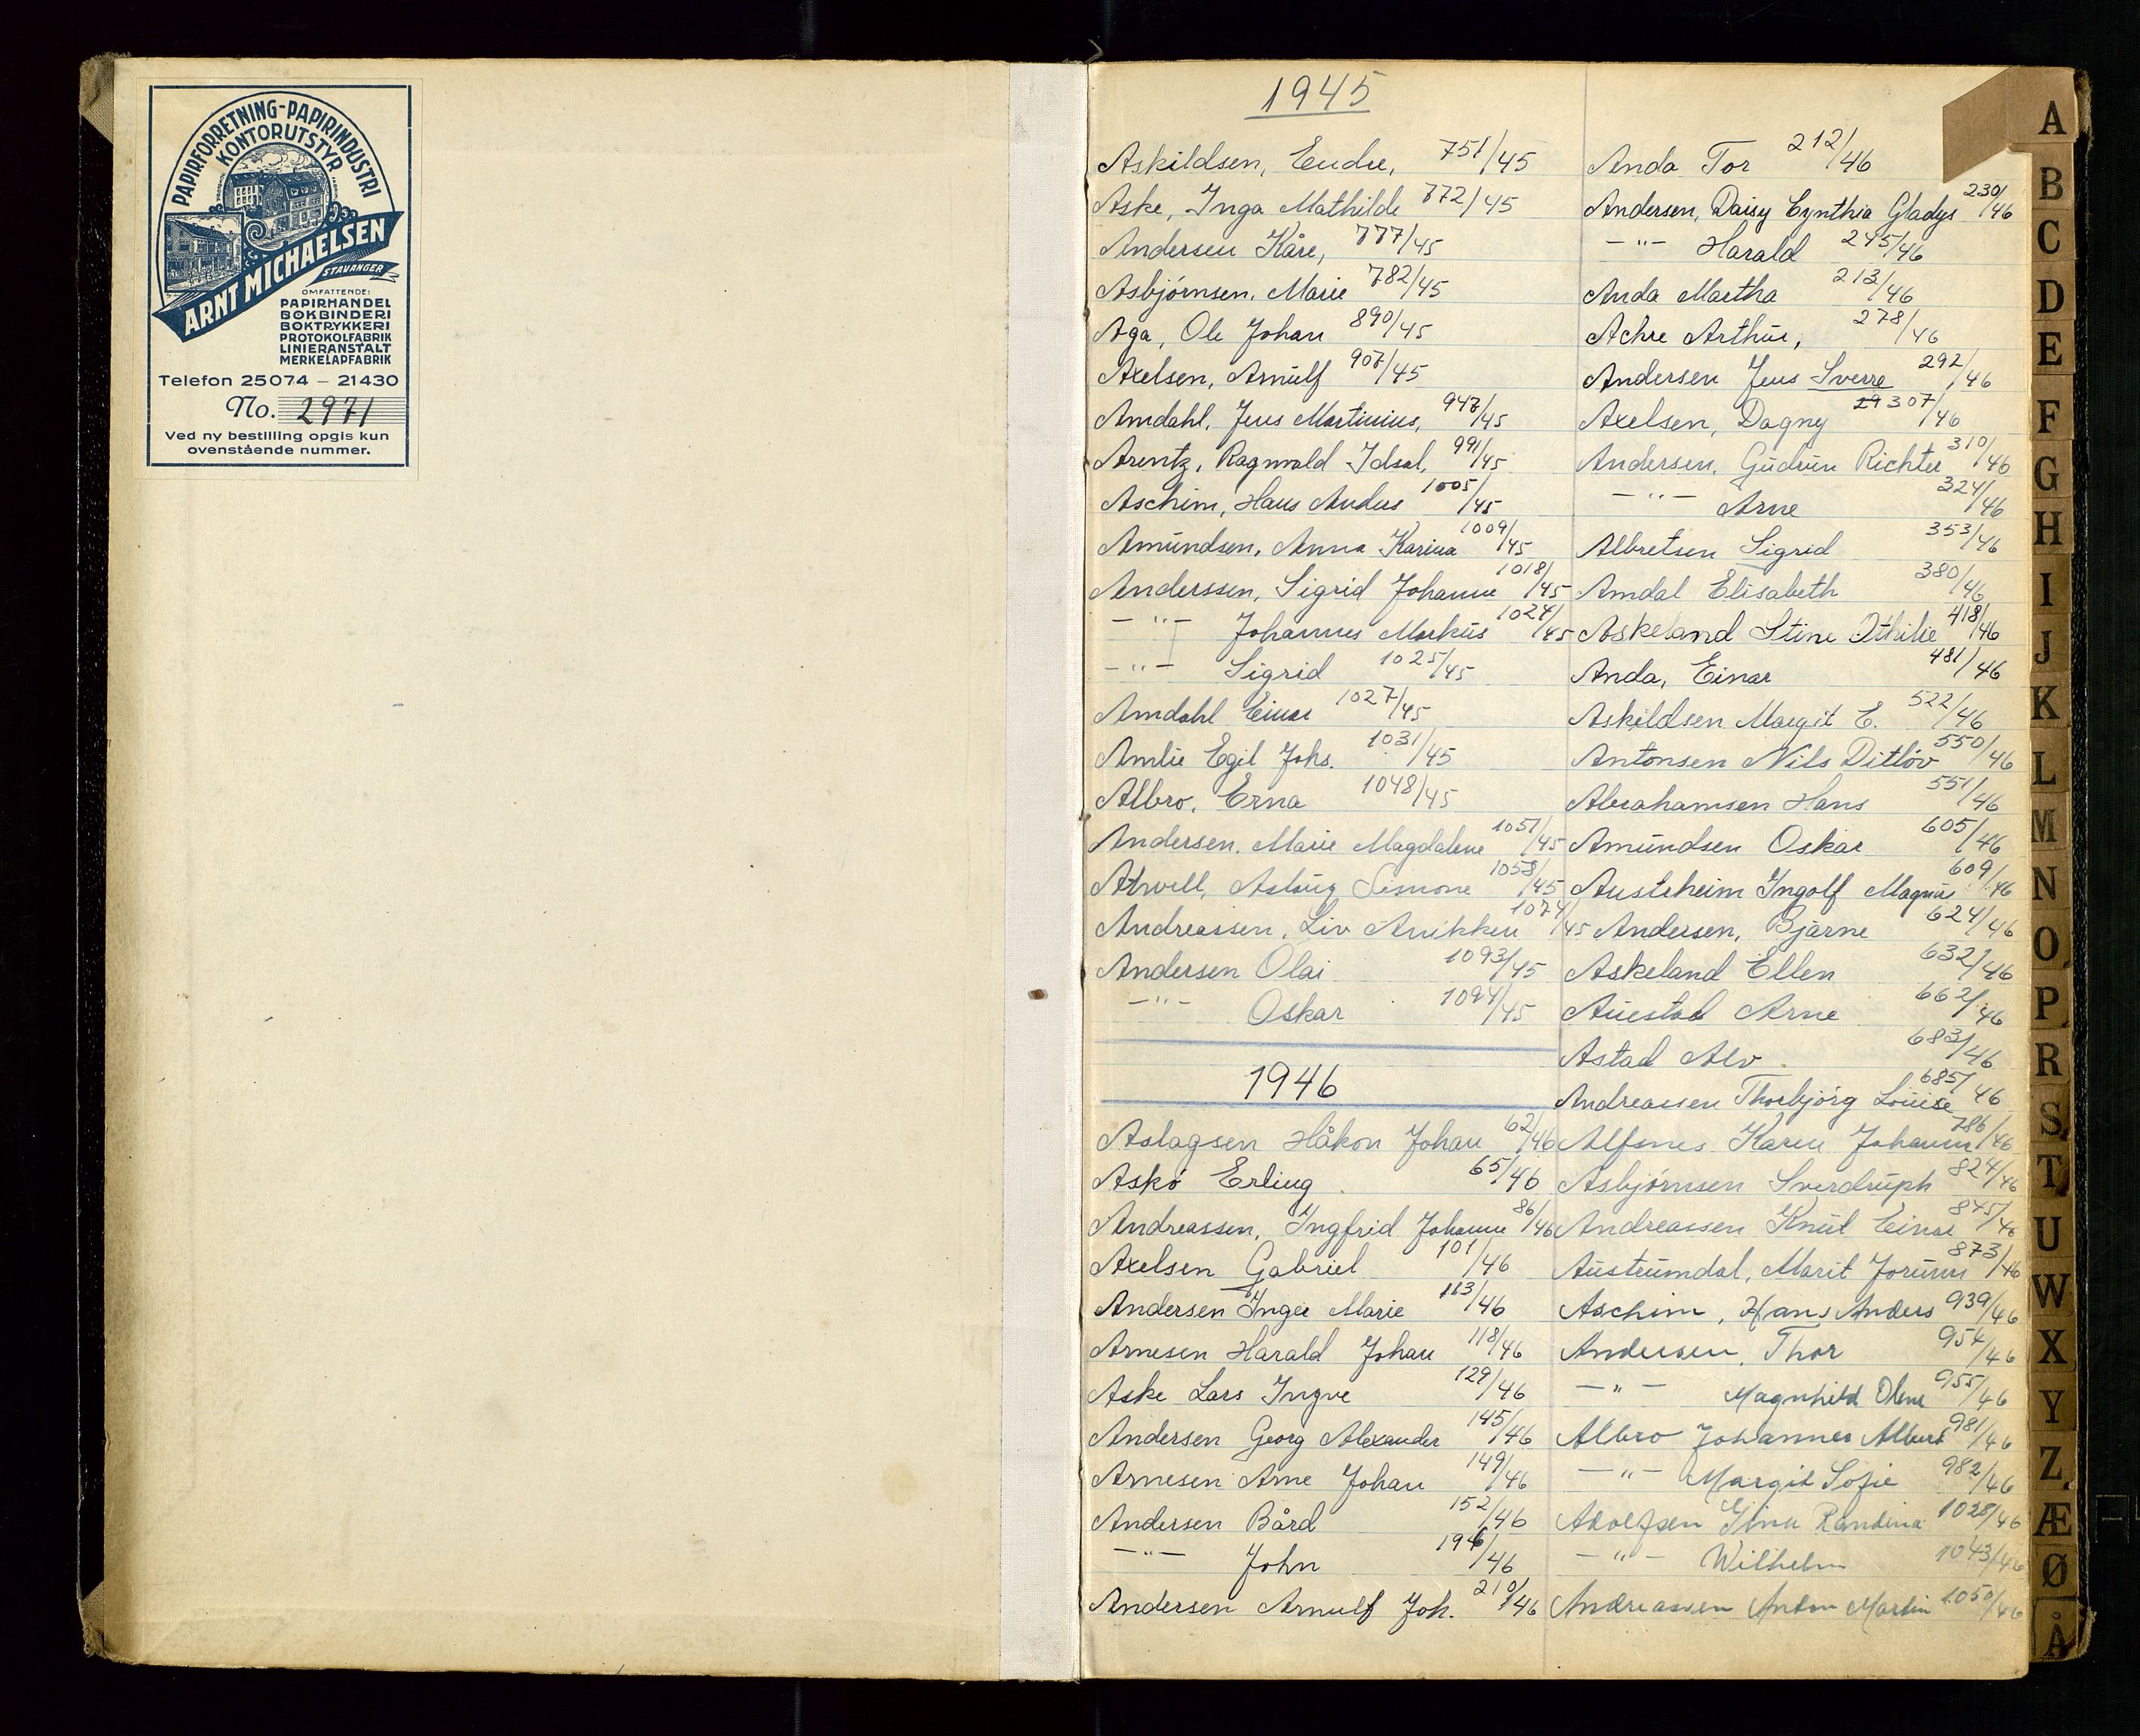 PAPIRFORRETNING-PAPIRINDUSTRI
KONTORUTSTYR
ARNT MICHAELSEN
STAVANGER
OMFATTENDE:
PAPIRHANDEL
BOKBINDERI
BOKTRYKKERI
PROTOKOLFABRIK
LINIERANSTALT
MERKELAPFABRIK
Telefon 25074 – 21430
No. 2971
Ved ny bestilling opgis kun
ovenstående nummer.
1945
Askildsen, Endre, 751/45
Aske, Inga Mathilde 772/45
Andersen Kåre, 777/45
Asbjørnsen, Marie 782/45
Aga, Ole Johan 890/45
Axelsen, Arnulf 907/45
Amdahl, Jens Martinius, 947/45
Arentz, Ragnvald Idsal, 991/45
Aschim, Hans Anders 1005/45
Amundsen, Anna Karina 1009/45
Anderssen, Sigrid Johanne 1018/45
–"– Johannes Markus 1024/45
–"– Sigrid 1025/45
Amdahl Einar 1027/45
Amlie Egil Johs. 1031/45
Albro, Erna 1048/45
Andersen, Marie Magdalene 1051/45
Atwell, Aslaug Simone 1058/45
Andreassen, Liv Annikken 1074/45
Andersen Olai 1093/45
–"– Oskar 1094/45
1946
Aslagsen Håkon Johan 62/46
Askø Erling 65/46
Andreassen, Ingfrid Johanne 86/46
Axelsen Gabriel 101/46
Andersen Inger Marie 113/46
Arnesen Harald Johan 118/46
Aske Lars Ingve 129/46
Andersen Georg Alexander 145/46
Arnesen Arne Johan 149/46
Andersen Bård 152/46
–"– John 196/46
Andersen Arnulf Joh. 210/46
Anda Tor 212/46
Andersen, Daisy Cynthia Gladys 230/46
–"– Harald 245/46
Anda Martha 213/46
Achre Arthur, 278/46
Andersen Jens Sverre 292/46
Axelsen, Dagny 307/46
Andersen, Gudrun Richter 310/46
–"– Arne 324/46
Albretsen Sigrid 353/46
Amdal Elisabeth 380/46
Askeland Stine Othilie 418/46
Anda, Einar 481/46
Askildsen Margit E. 522/46
Antonsen Nils Ditløv 550/46
Abrahamsen Hans 551/46
Amundsen Oskar 605/46
Austrheim Ingolf Magnus 609/46
Andersen, Bjarne 624/46
Askeland Ellen 632/46
Auestad Arne 662/46
Astad Alv 683/46
Andreassen Thorbjørg Louise 685/46
Alfsnes Karen Johanne 786/46
Asbjørnsen Sverdruph 824/46
Andreassen Knut Einar 845/46
Austrumdal, Marit Jorunn 873/46
Aschim, Hans Anders 939/46
Andersen, Thor 954/46
–"– Magnhild Olene 955/46
Albro Johannes Albert 981/46
–"– Margit Sofie 982/46
Adolfsen Gina Randina 1028/46
–"– Wilhelm 1043/46
Andreassen Anton Martin 1050/46
A
B
C
D
E
F
G
H
I
J
K
L
M
N
O
P
R
S
T
U
W
X
Y
Z
Æ
Ø
Å